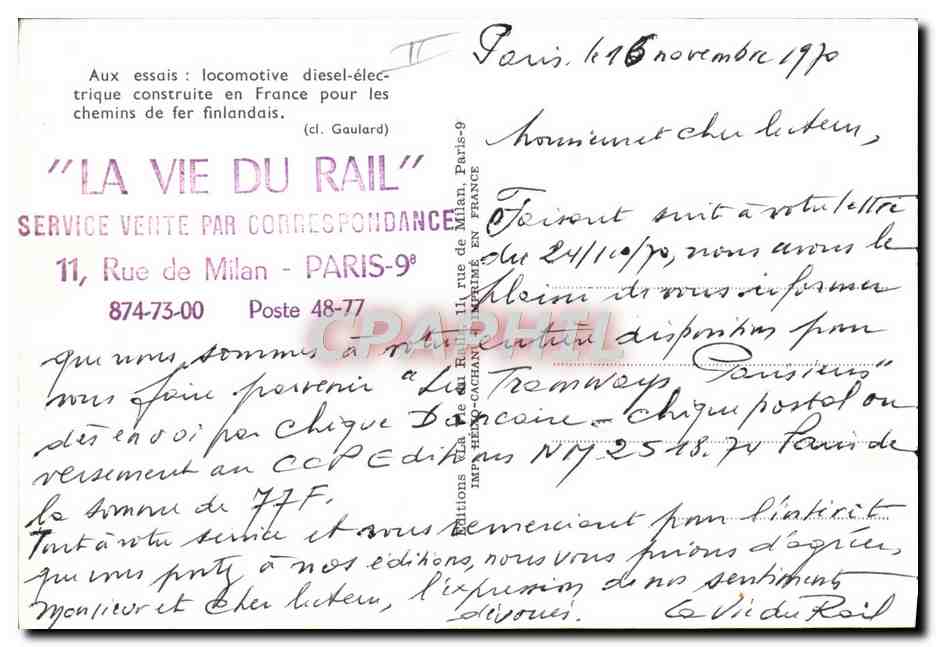 Paris. le 16 novembre 1970
II
Aux essais : locomotive diesel-élec-
trique construite en France pour les
chemins de fer finlandais.
(cl. Gaulard)
"LA VIE DU RAIL"
SERVICE VENTE PAR CORRESPONDANCE
11, Rue de Milan - PARIS-9e
874-73-00 Poste 48-77
Editions «La Vie du Rail», 11, rue de Milan, Paris-9
IMP. HÉLIO-CACHAN IMPRIMÉ EN FRANCE
Monsieur et cher lecteur,
Faisant suit à votre lettre
du 24/10/70, nous avons le
plaisir de vous informer
que nous sommes à votre entière disposition pour
vous faire parvenir "Les Tramways Parisiens"
dès envoi par chèque Bancaire - chèque postal ou
versement au CCP Editions NM 25 18.74 Paris de
la somme de 77F.
Tout à votre service et vous remerciant pour l'intérêt
que vous portez à nos éditions, nous vous prions d'agréer,
Monsieur et cher lecteur, l'expression de nos sentiments
dévoués. La Vie du Rail
CPAPHIL